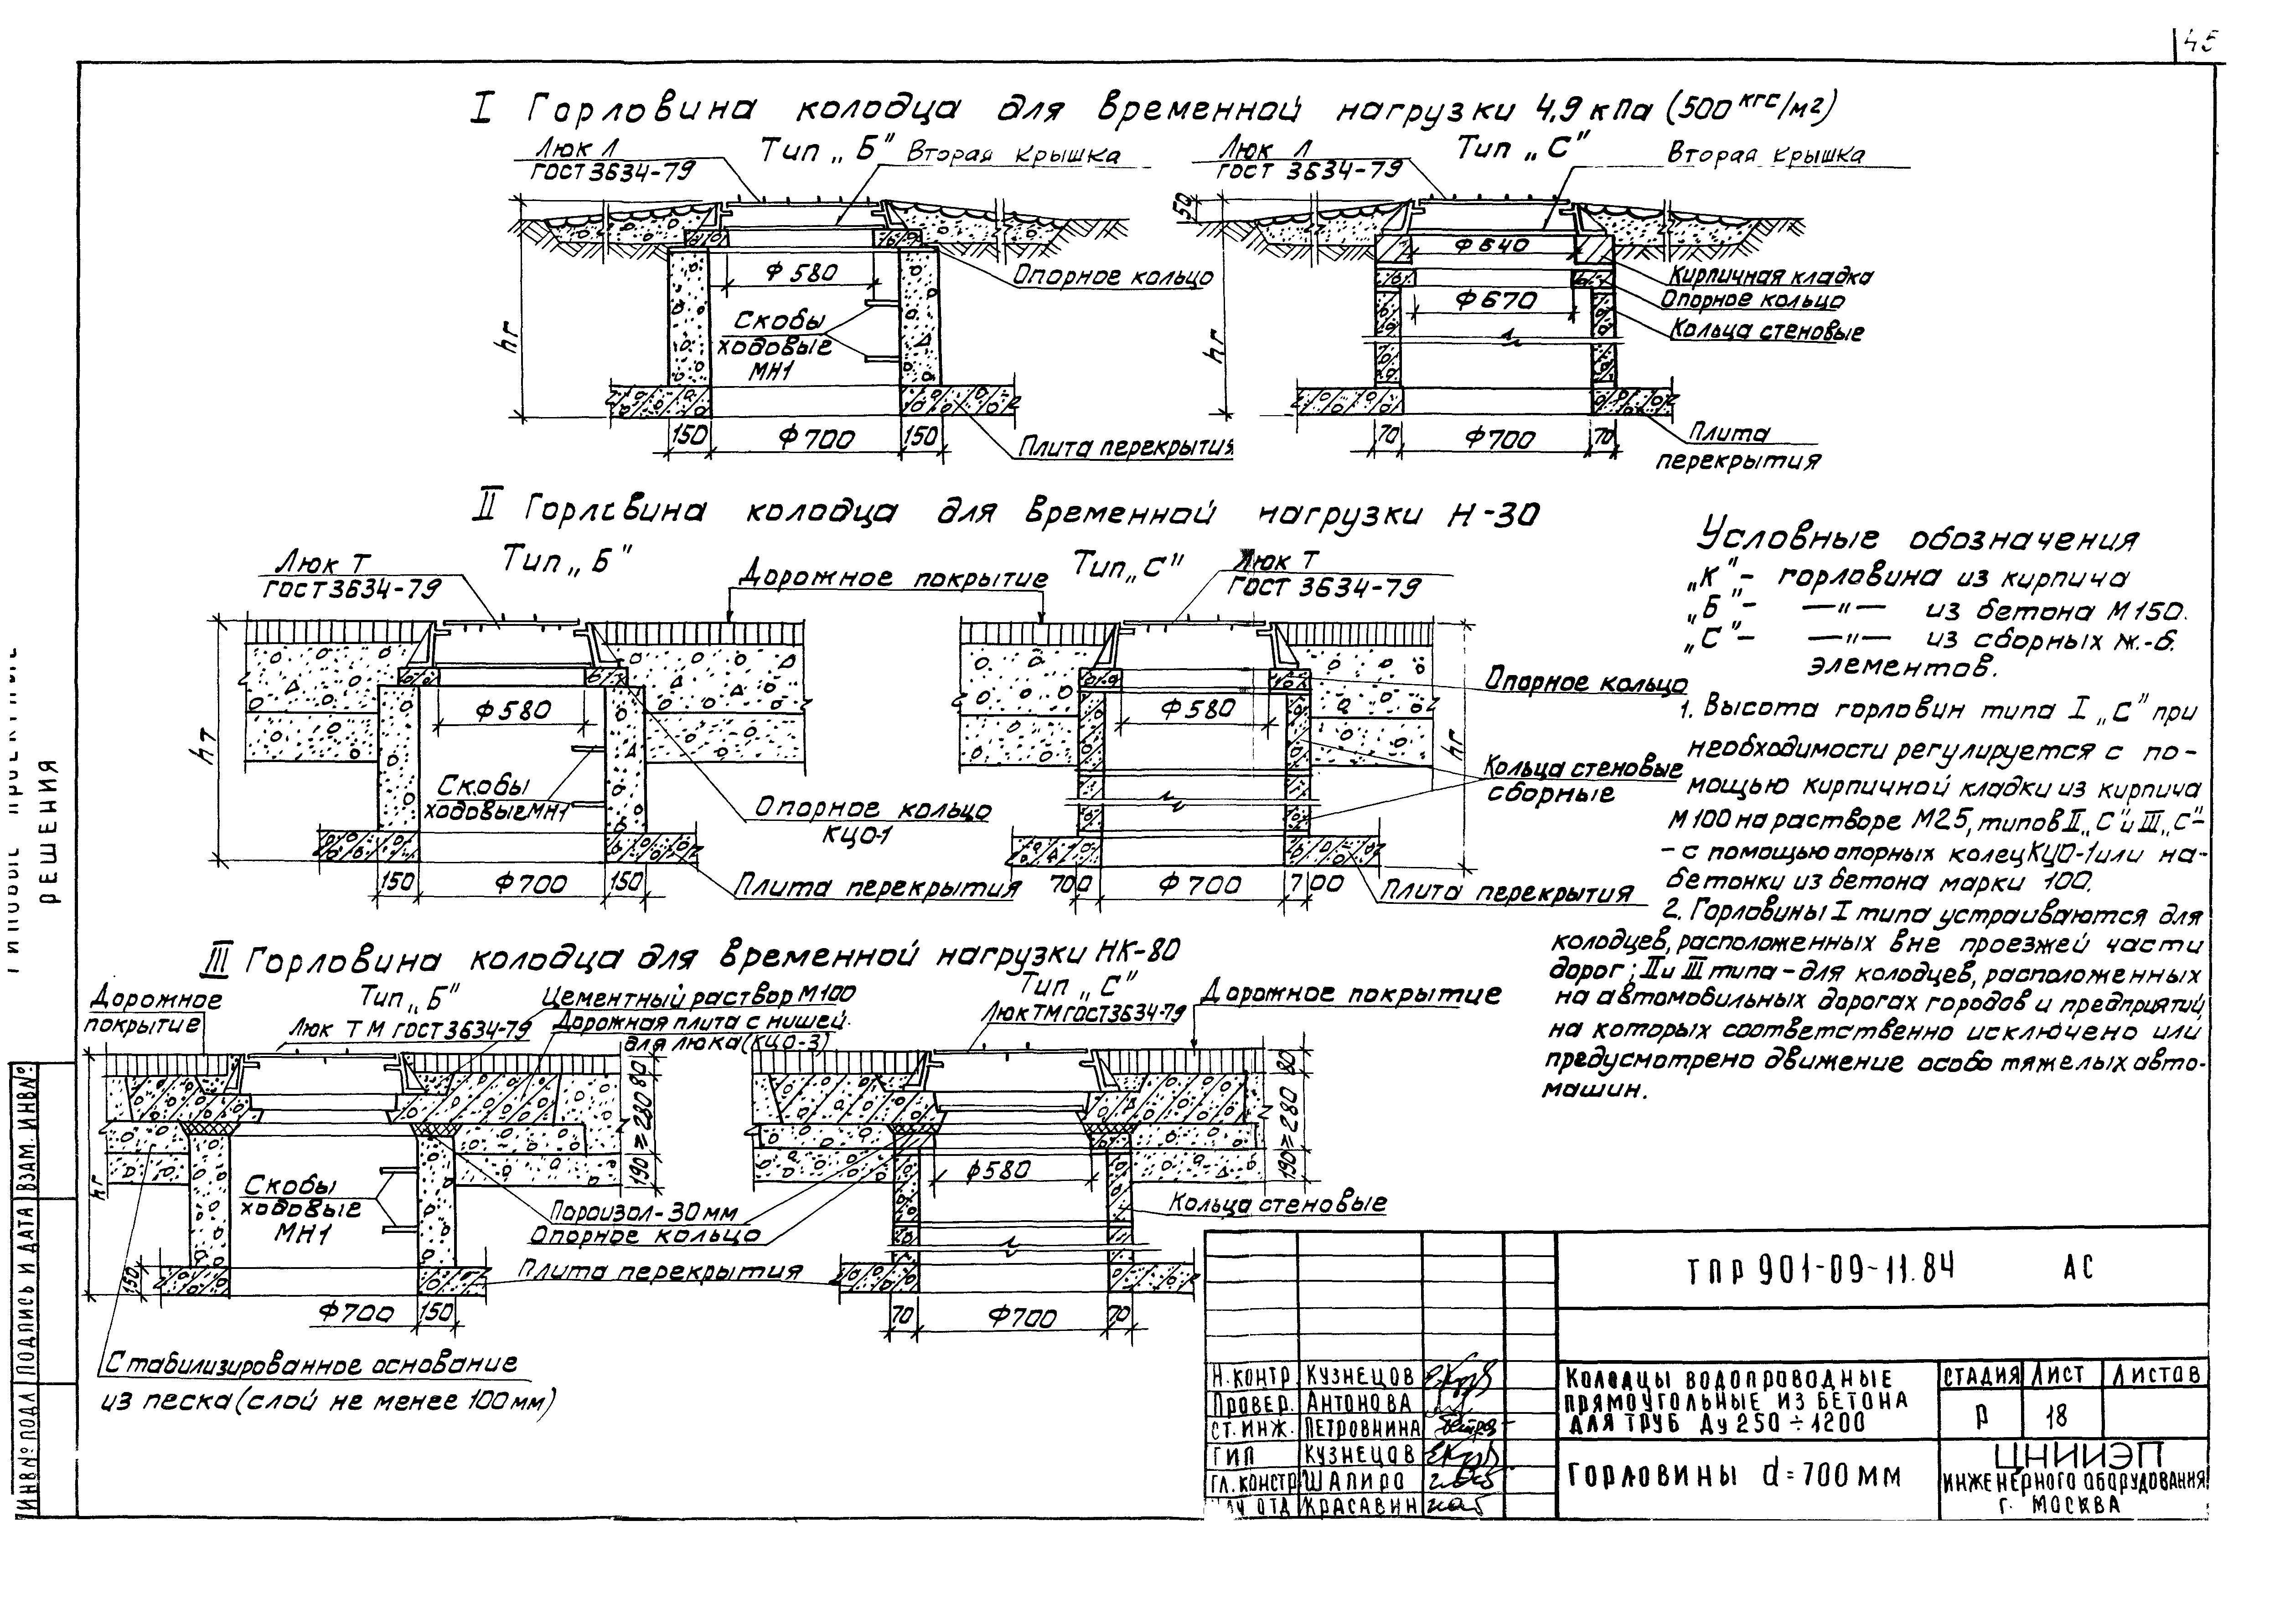 45
I Горловина колодца для временной нагрузки 4,9 кПа (500 кгс/м2)
Люк Л
ГОСТ 3634-79
Тип „Б"
Вторая крышка
Ф 580
Опорное кольцо
Скобы
ходовые
МН1
hг
150
Ф 700
150
Плита перекрытия
Люк Л
ГОСТ 3634-79
Тип „С"
Вторая крышка
50
Ф 640
Кирпичная кладка
Опорное кольцо
Ф 670
Кольца стеновые
hг
70
Ф700
70
Плита
перекрытия
II Горловина колодца для временной нагрузки Н-30
Люк Т
ГОСТ 3634-79
Тип „Б"
Дорожное покрытие
Ф 580
hг
Скобы
ходовые МН1
Опорное кольцо
КЦО-1
150
Ф700
150
Плита перекрытия
Тип „С"
Люк Т
ГОСТ 3634-79
Опорное кольцо
Ф580
hг
Кольца стеновые
сборные
700
Ф700
700
Плита перекрытия
Условные обозначения
„К"- горловина из кирпича
„Б"- —„— из бетона М 150.
„С"- —„— из сборных ж.-б.
элементов.
1. Высота горловин типа I „С" при
необходимости регулируется с по-
мощью кирпичной кладки из кирпича
М 100 на растворе М25, типов II „С" и III „С"-
- с помощью опорных колец КЦО-1 или на-
бетонки из бетона марки 100.
2. Горловины I типа устраиваются для
колодцев, расположенных вне проезжей части
дорог; II и III типа - для колодцев, расположенных
на автомобильных дорогах городов и предприятий,
на которых соответственно исключено или
предусмотрено движение особо тяжелых авто-
машин.
III Горловина колодца для временной нагрузки НК-80
Дорожное
покрытие
Тип „Б"
Люк ТМ ГОСТ 3634-79
Цементный раствор М100
Дорожная плита с нишей
для люка (КЦО-3)
80
≥280
190
hг
Скобы
ходовые
МН1
Пороизол-30мм
Опорное кольцо
Плита перекрытия
150
Ф700
150
Стабилизированное основание
из песка (слой не менее 100мм)
Тип „С"
Люк ТМ ГОСТ 3634-79
Дорожное покрытие
80
≥280
190
Ф580
Кольца стеновые
70
Ф700
70
РЕШЕНИЯ
ВЗАМ. ИНВ№
ПОДПИСЬ И ДАТА
ИНВ№ ПОДЛ
ТПР 901-09-11.84 АС
Н.КОНТР КУЗНЕЦОВ
ПРОВЕР. АНТОНОВА
СТ.ИНЖ. ПЕТРОВНИНА
ГИП КУЗНЕЦОВ
ГЛ.КОНСТР ШАПИРО
ОТД КРАСАВИН
КОЛОДЦЫ ВОДОПРОВОДНЫЕ
ПРЯМОУГОЛЬНЫЕ ИЗ БЕТОНА
ДЛЯ ТРУБ Ду 250÷1200
СТАДИЯ ЛИСТ ЛИСТОВ
Р 18
ГОРЛОВИНЫ d=700мм
ЦНИИЭП
ИНЖЕНЕРНОГО ОБОРУДОВАНИЯ
Г. МОСКВА